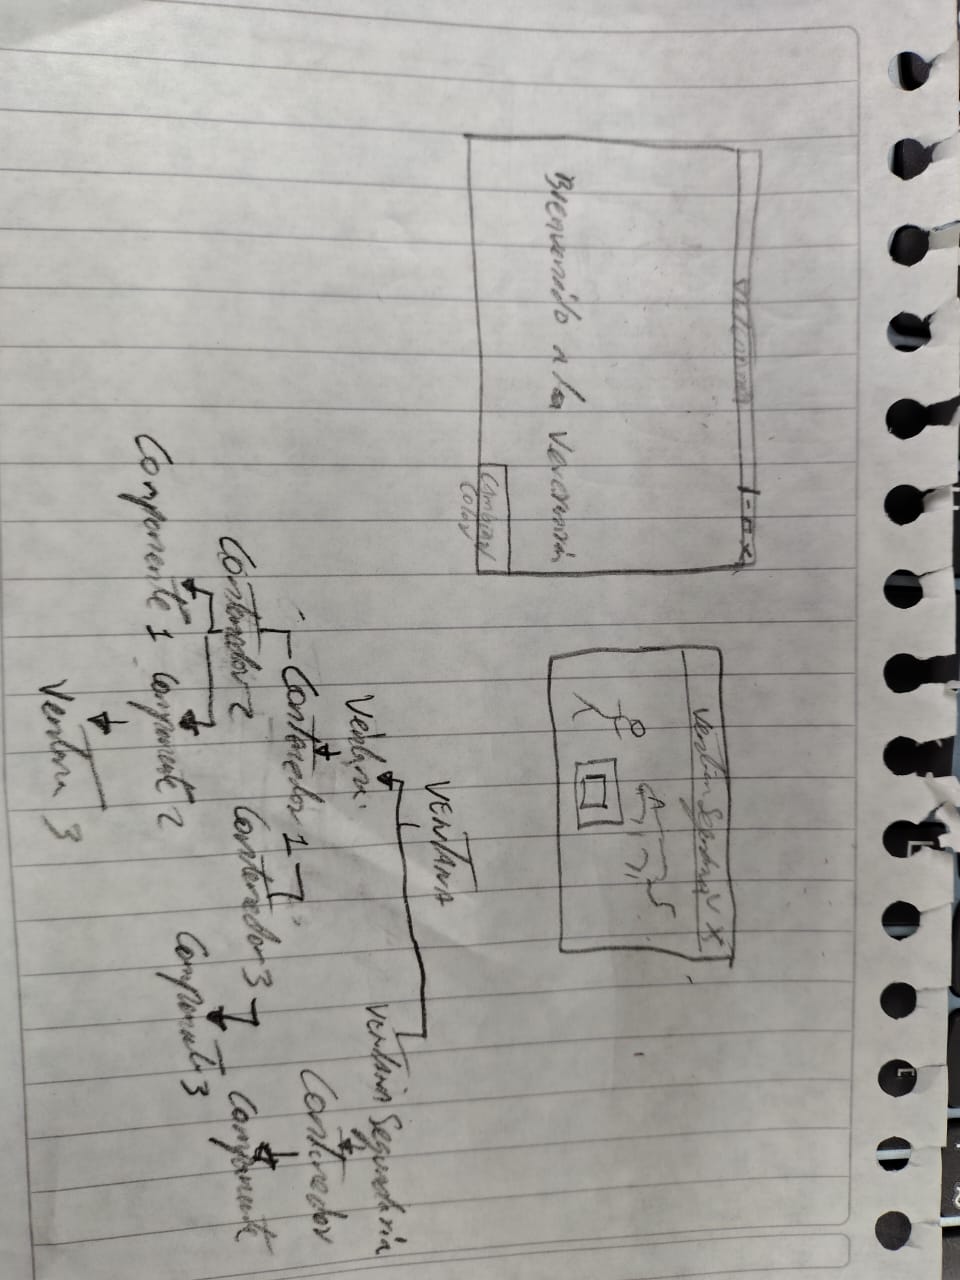 Veterinaria
- □ x
Bienvenido a la Veterinaria
Cambiar
Color
Ventan Segundaria X
VENTANA
Ventana.
VENTANA Segundaria
Contenedor 1
Contenedor
Contenedor 2
Contenedor 3
Componente
Componente 3
Componente 1
Componente 2
Ventana 3